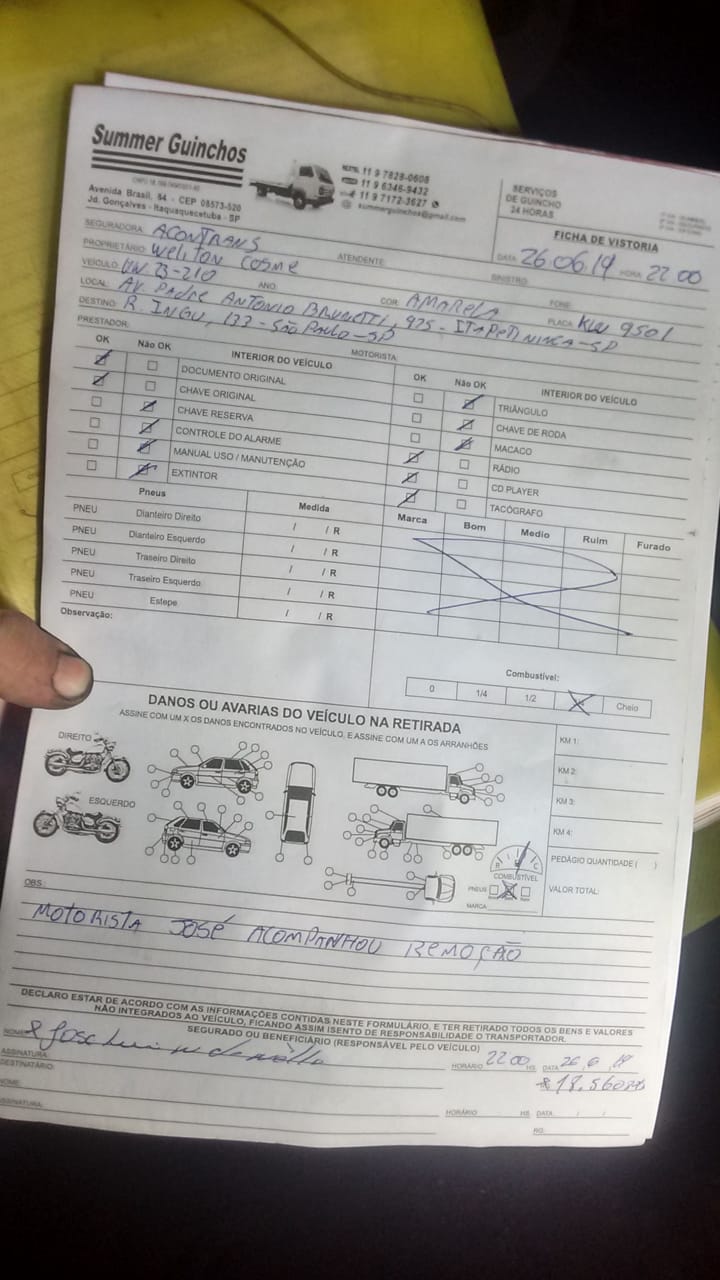 Summer Guinchos
Avenida Brasil, 64 - CEP 08573-520
Jd. Gonçalves - Itaquaquecetuba - SP
11 9 7828-0608
11 9 6346-9432
11 9 7172-3627
summerguinchos@gmail.com
SERVIÇOS
DE GUINCHO
24 HORAS
FICHA DE VISTORIA
DATA 26.06.19 HORA 22.00
SEGURADORA: ACONTRANS ATENDENTE: SINISTRO:
PROPRIETÁRIO: WELITON COSME FONE:
VEÍCULO: VW 23-210 ANO: COR: AMARELA PLACA: 9501
LOCAL: AV. PADRE ANTONIO BRUNETTI, 925 - ITAPETININGA-SP
DESTINO: R. INGU, 133 - SÃO PAULO-SP
PRESTADOR: MOTORISTA:
OK Não OK INTERIOR DO VEÍCULO
DOCUMENTO ORIGINAL
CHAVE ORIGINAL
CHAVE RESERVA
CONTROLE DO ALARME
MANUAL USO / MANUTENÇÃO
EXTINTOR
OK Não OK INTERIOR DO VEÍCULO
TRIÂNGULO
CHAVE DE RODA
MACACO
RÁDIO
CD PLAYER
TACÓGRAFO
Pneus Medida Marca Bom Medio Ruim Furado
PNEU Dianteiro Direito / / R
PNEU Dianteiro Esquerdo / / R
PNEU Traseiro Direito / / R
PNEU Traseiro Esquerdo / / R
PNEU Estepe / / R
Observação:
Combustível:
0 1/4 1/2 Cheio
DANOS OU AVARIAS DO VEÍCULO NA RETIRADA
ASSINE COM UM X OS DANOS ENCONTRADOS NO VEÍCULO, E ASSINE COM UM A OS ARRANHÕES
DIREITO
ESQUERDO
KM 1:
KM 2:
KM 3:
KM 4:
PEDÁGIO QUANTIDADE ( )
VALOR TOTAL:
R C
COMBUSTÍVEL
PNEUS
MARCA
OBS:
MOTORISTA JOSÉ ACOMPANHOU REMOÇÃO
DECLARO ESTAR DE ACORDO COM AS INFORMAÇÕES CONTIDAS NESTE FORMULÁRIO, E TER RETIRADO TODOS OS BENS E VALORES
NÃO INTEGRADOS AO VEÍCULO, FICANDO ASSIM ISENTO DE RESPONSABILIDADE O TRANSPORTADOR.
SEGURADO OU BENEFICIÁRIO (RESPONSÁVEL PELO VEÍCULO)
NOME:
ASSINATURA: HORÁRIO 22 00 HS. DATA 26.6.19
DESTINATÁRIO:
NOME:
ASSINATURA: HORÁRIO HS. DATA / /
RG: